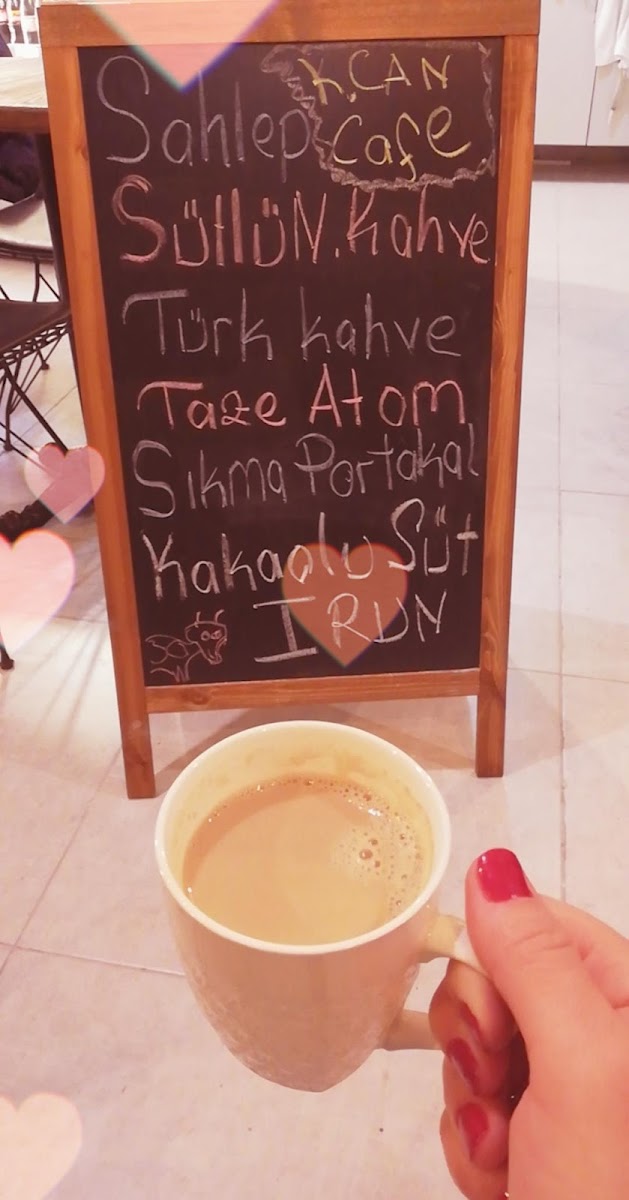 Sahlep
K.CAN
Cafe
SütlüN.Kahve
Türk kahve
Taze Atom
Sıkma Portakal
Kakaolu Süt
IRUN